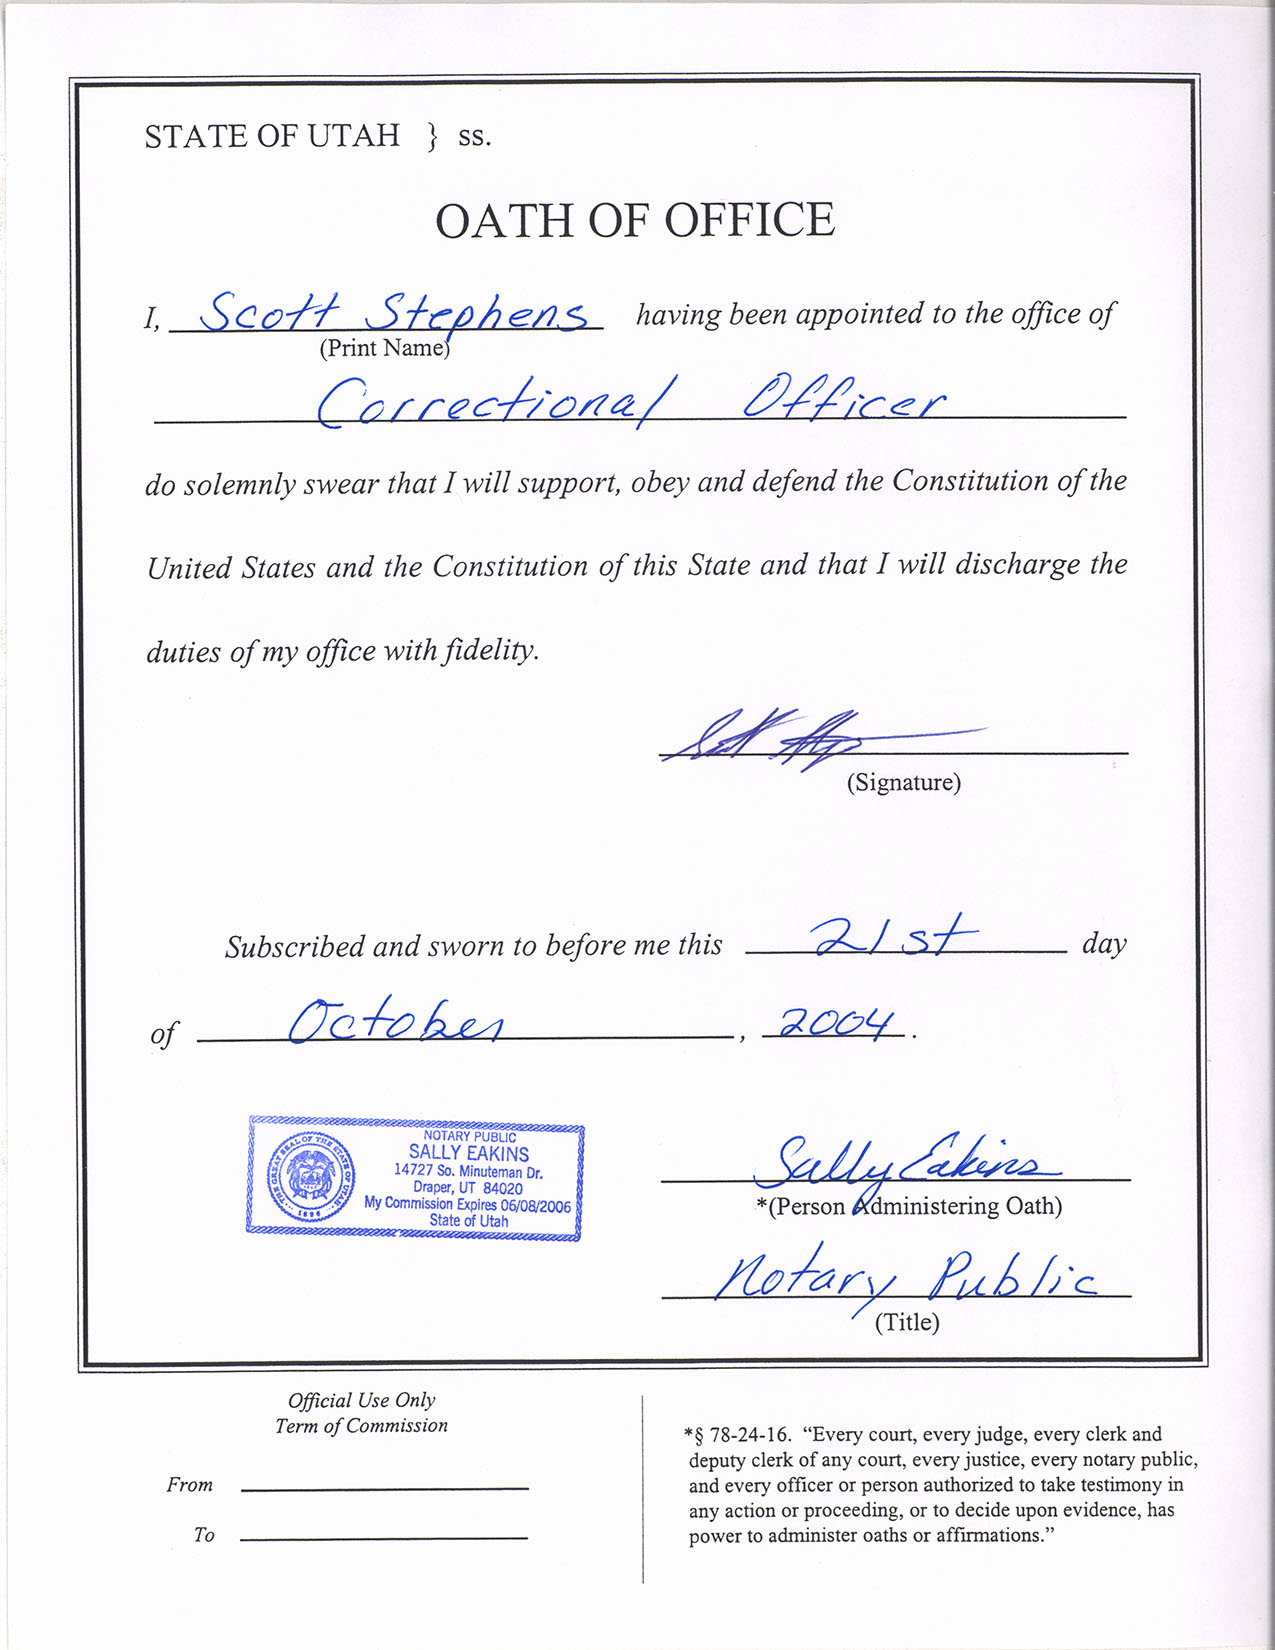 STATE OF UTAH } ss.
OATH OF OFFICE
I, Scott Stephens having been appointed to the office of
(Print Name)
Correctional Officer
do solemnly swear that I will support, obey and defend the Constitution of the
United States and the Constitution of this State and that I will discharge the
duties of my office with fidelity.
Scott Stephens
(Signature)
Subscribed and sworn to before me this 21st day
of October, 2004.
THE GREAT SEAL OF THE STATE OF UTAH
1896
NOTARY PUBLIC
SALLY EAKINS
14727 So. Minuteman Dr.
Draper, UT 84020
My Commission Expires 06/08/2006
State of Utah
Sally Eakins
*(Person Administering Oath)
Notary Public
(Title)
Official Use Only
Term of Commission
From
To
*§ 78-24-16. “Every court, every judge, every clerk and
deputy clerk of any court, every justice, every notary public,
and every officer or person authorized to take testimony in
any action or proceeding, or to decide upon evidence, has
power to administer oaths or affirmations.”